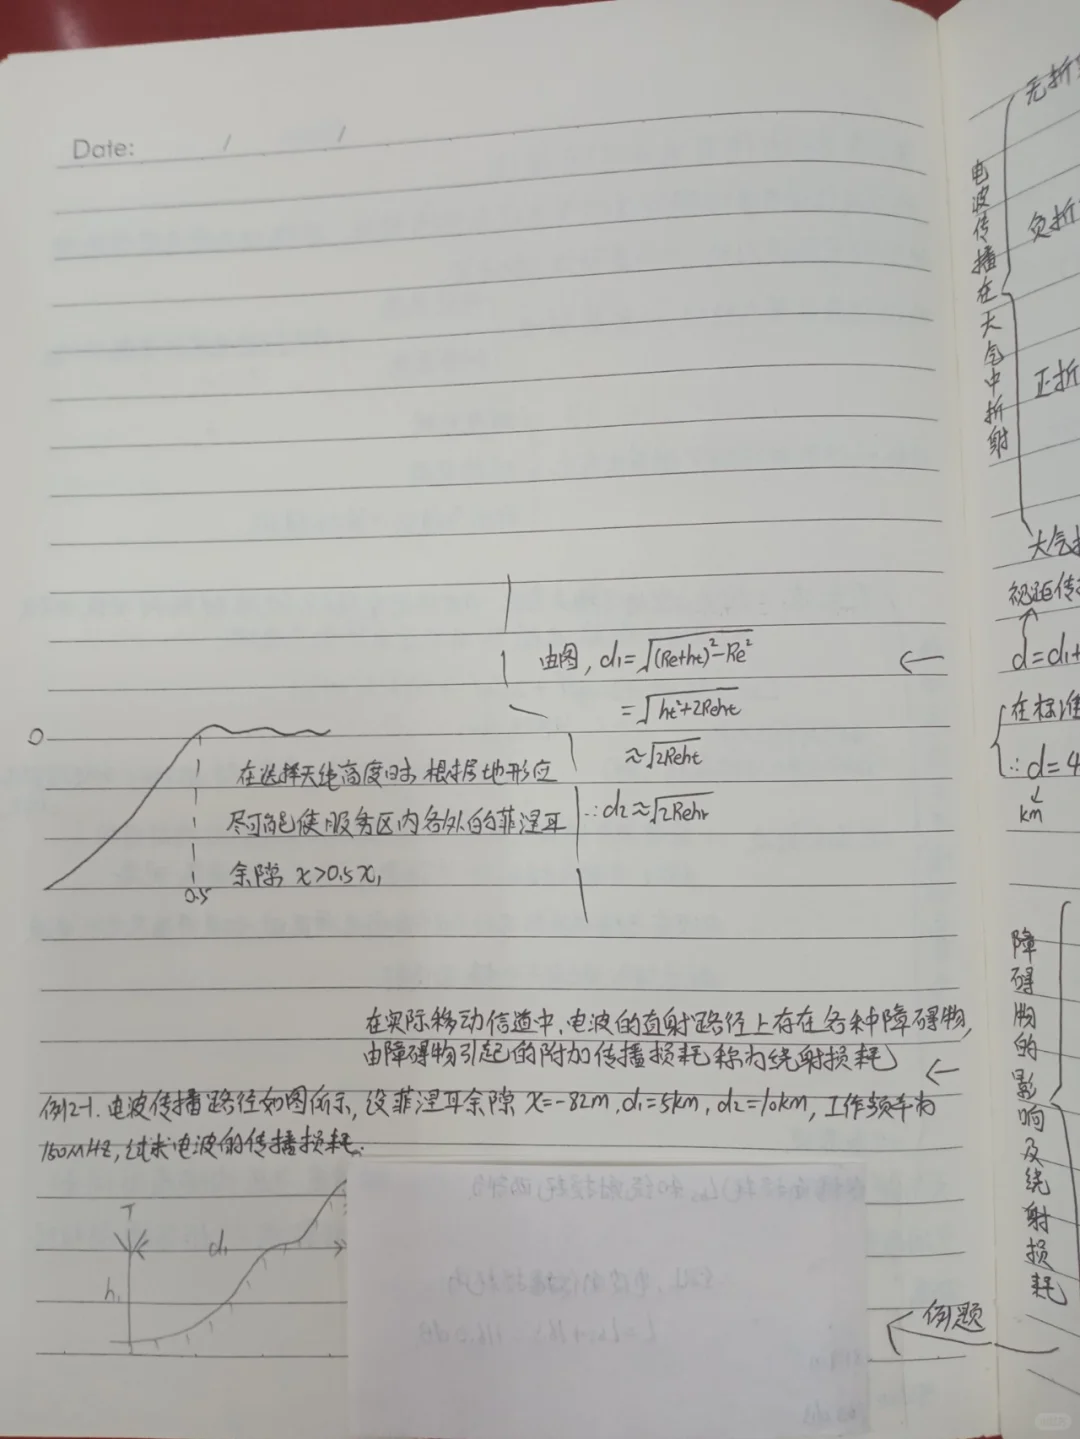 Date: / /
由图, d₁=√(Re+ht)²-Re²
=√ht²+2Reht
≈√2Reht
∴d₂≈√2Rehr
0
在选择天线高度时, 根据地形应
尽可能使服务区内各处的菲涅耳
余隙 x>0.5x₁
0.5
在实际移动信道中, 电波的直射路径上存在各种障碍物,
由障碍物引起的附加传播损耗称为绕射损耗
例2-1. 电波传播路径如图所示, 设菲涅耳余隙 x=-82m, d₁=5km, d₂=10km, 工作频率为
150MHz, 试求电波的传播损耗.
T
d₁
h₁
例题
电波传播在大气中折射
无折
负折
正折
大气折
视距传
d=d₁+
在标准
∴d=4
km
障碍物的影响及绕射损耗